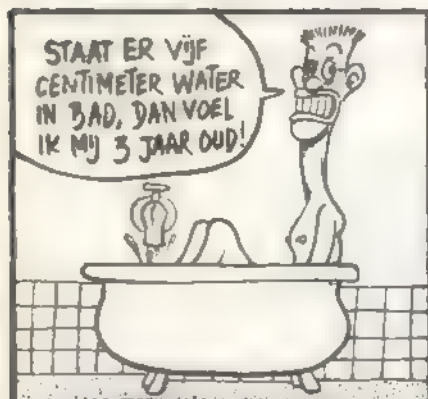 STAAT ER VIJF
CENTIMETER WATER
IN BAD, DAN VOEL
IK MIJ 3 JAAR OUD!